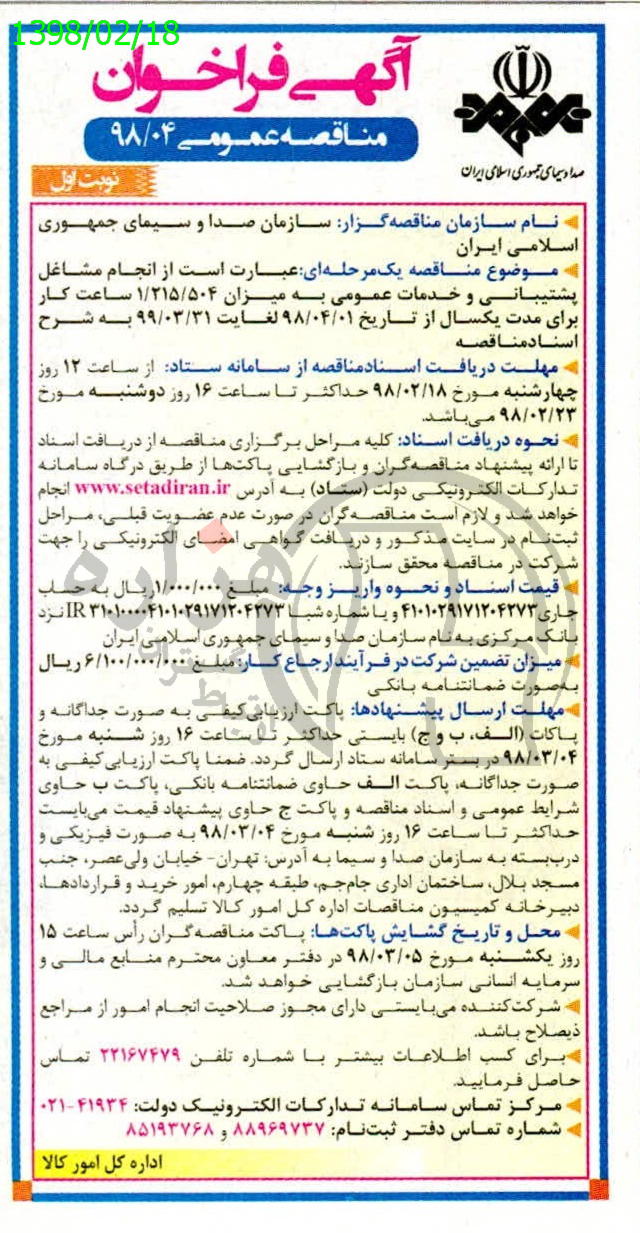 1398/02/18
آگهی فراخوان
مناقصه عمومی ۹۸/۰۴
صدا و سیمای جمهوری اسلامی ایران
نوبت اول
نام سازمان مناقصه‌گزار: سازمان صدا و سیمای جمهوری
اسلامی ایران
موضوع مناقصه یک‌مرحله‌ای: عبارت است از انجام مشاغل
پشتیبانی و خدمات عمومی به میزان ۱/۲۱۵/۵۰۴ ساعت کار
برای مدت یکسال از تاریخ ۹۸/۰۴/۰۱ لغایت ۹۹/۰۳/۳۱ به شرح
اسنادمناقصه
مهلت دریافت اسنادمناقصه از سامانه ستاد: از ساعت ۱۲ روز
چهارشنبه مورخ ۹۸/۰۲/۱۸ حداکثر تا ساعت ۱۶ روز دوشنبه مورخ
۹۸/۰۲/۲۳ می‌باشد.
نحوه دریافت اسناد: کلیه مراحل برگزاری مناقصه از دریافت اسناد
تا ارائه پیشنهاد مناقصه‌گران و بازگشایی پاکت‌ها از طریق درگاه سامانه
تدارکات الکترونیکی دولت (ستاد) به آدرس www.setadiran.ir انجام
خواهد شد و لازم است مناقصه‌گران در صورت عدم عضویت قبلی، مراحل
ثبت‌نام در سایت مذکور و دریافت گواهی امضای الکترونیکی را جهت
شرکت در مناقصه محقق سازند.
قیمت اسناد و نحوه واریز وجه: مبلغ ۱/۰۰۰/۰۰۰ریال به حساب
جاری ۴۱۰۱۰۲۹۱۷۱۲۰۴۲۷۳ و یا شماره شبا IR ۳۱۰۱۰۰۰۰۴۱۰۱۰۲۹۱۷۱۲۰۴۲۷۳ نزد
بانک مرکزی به نام سازمان صدا و سیمای جمهوری اسلامی ایران
میزان تضمین شرکت در فرآیند ارجاع کار: مبلغ ۶/۱۰۰/۰۰۰/۰۰۰ ریال
به‌صورت ضمانتنامه بانکی
مهلت ارسال پیشنهادها: پاکت ارزیابی‌کیفی به صورت جداگانه و
پاکات (الف، ب و ج) بایستی حداکثر تا ساعت ۱۶ روز شنبه مورخ
۹۸/۰۳/۰۴ در بستر سامانه ستاد ارسال گردد. ضمنا پاکت ارزیابی‌کیفی به
صورت جداگانه، پاکت الف حاوی ضمانتنامه بانکی، پاکت ب حاوی
شرایط عمومی و اسناد مناقصه و پاکت ج حاوی پیشنهاد قیمت می‌بایست
حداکثر تا ساعت ۱۶ روز شنبه مورخ ۹۸/۰۳/۰۴ به صورت فیزیکی و
درب‌بسته به سازمان صدا و سیما به آدرس: تهران- خیابان ولی‌عصر، جنب
مسجد بلال، ساختمان اداری جام‌جم، طبقه چهارم، امور خرید و قراردادها،
دبیرخانه کمیسیون مناقصات اداره کل امور کالا تسلیم گردد.
محل و تاریخ گشایش پاکت‌ها: پاکت مناقصه‌گران رأس ساعت ۱۵
روز یکشنبه مورخ ۹۸/۰۳/۰۵ در دفتر معاون محترم منابع مالی و
سرمایه انسانی سازمان بازگشایی خواهد شد.
شرکت‌کننده می‌بایستی دارای مجوز صلاحیت انجام امور از مراجع
ذیصلاح باشد.
برای کسب اطلاعات بیشتر با شماره تلفن ۲۲۱۶۷۴۷۹ تماس
حاصل فرمایید.
مرکز تماس سامانه تدارکات الکترونیک دولت: ۴۱۹۳۴-۰۲۱
شماره تماس دفتر ثبت‌نام: ۸۸۹۶۹۷۳۷ و ۸۵۱۹۳۷۶۸
اداره کل امور کالا